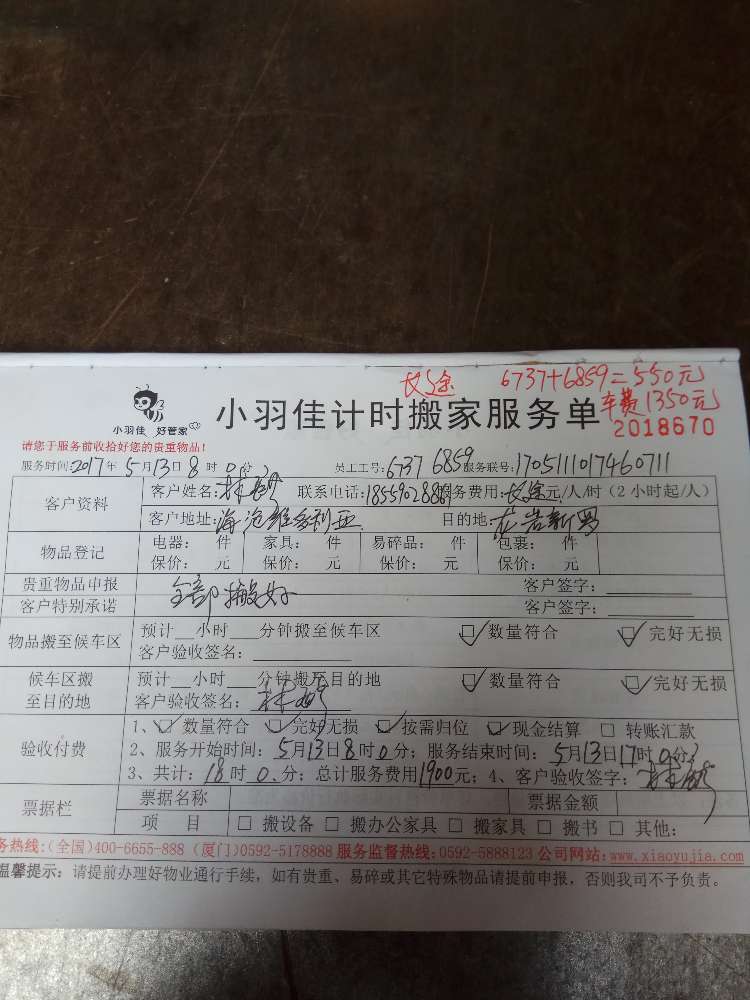 长途 6737+6859=550元
车费1350元
小羽佳 好管家
小羽佳计时搬家服务单
2018670
请您于服务前收拾好您的贵重物品!
服务时间:2017年5月13日8时0分 员工工号:6737 6859 服务联号:1705111017460711
客户资料 客户姓名:林 联系电话: 服务费用:长途元/人/时(2小时起/人)
客户地址:海沧维多利亚 目的地:
物品登记 电器: 件 家具: 件 易碎品: 件 包裹: 件
保价: 元 保价: 元 保价: 元 保价: 元
贵重物品申报 全部搬好 客户签字:
客户特别承诺 客户签字:
物品搬至候车区 预计__小时__分钟搬至候车区 数量符合 完好无损
客户验收签名:
候车区搬至目的地 预计__小时__分钟搬至目的地 数量符合 完好无损
客户验收签名:林
验收付费 1、数量符合 完好无损 按需归位 现金结算 转账汇款
2、服务开始时间:5月13日8时0分;服务结束时间:5月13日17时0分
3、共计:18时0.分;总计服务费用1900元;4、客户验收签字:林
票据栏 票据名称 票据金额
项 目 □ 搬设备 □ 搬办公家具 □ 搬家具 □ 搬书 □ 其他:
务热线:(全国)400-6655-888 (厦门)0592-5178888 服务监督热线:0592-5888123 公司网站:www.xiaoyujia.com
温馨提示:请提前办理好物业通行手续,如有贵重、易碎或其它特殊物品请提前申报,否则我司不予负责。